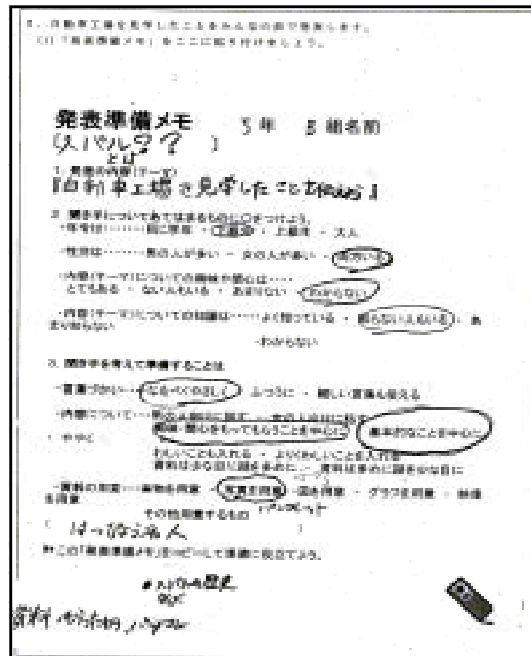 2. 自動車工場を見学したことをみんなの前で発表します。
(1)「発表準備メモ」をここに貼り付けましょう。
発表準備メモ 5年 組名前
(スバルタ??)
とは
1. 発表の内容(テーマ)
『自動車工場を見学したことを
2. 聞き手についてあてはまるものに○をつけよう。
・年令は……同じ学年・下級生・上級生・大人
・性別は……男の人が多い・女の人が多い・両方いる
・内容(テーマ)についての興味や関心は……
とてもある・ない人もいる・あまりない・わからない
・内容(テーマ)についての知識は……よく知っている・知らない人もいる・あ
まり知らない
・わからない
3. 聞き手を考えて準備することは
・言葉づかい……なるべくやさしく・ふつうに・難しい言葉も使える
・内容について
興味・関心をもってもらうことを中心に 基本的なことを中心に
わしいことも入れる・よりくわしいことを入れる
資料は少な目に話を多めに・資料は多めに話を少な目に
・資料の用意……実物を用意・写真を用意・図を用意・グラフを用意・映像
を用意
その他用意するもの
パンフレット
※この「発表準備メモ」をコピーして準備に役立てよう。
歴史
資料